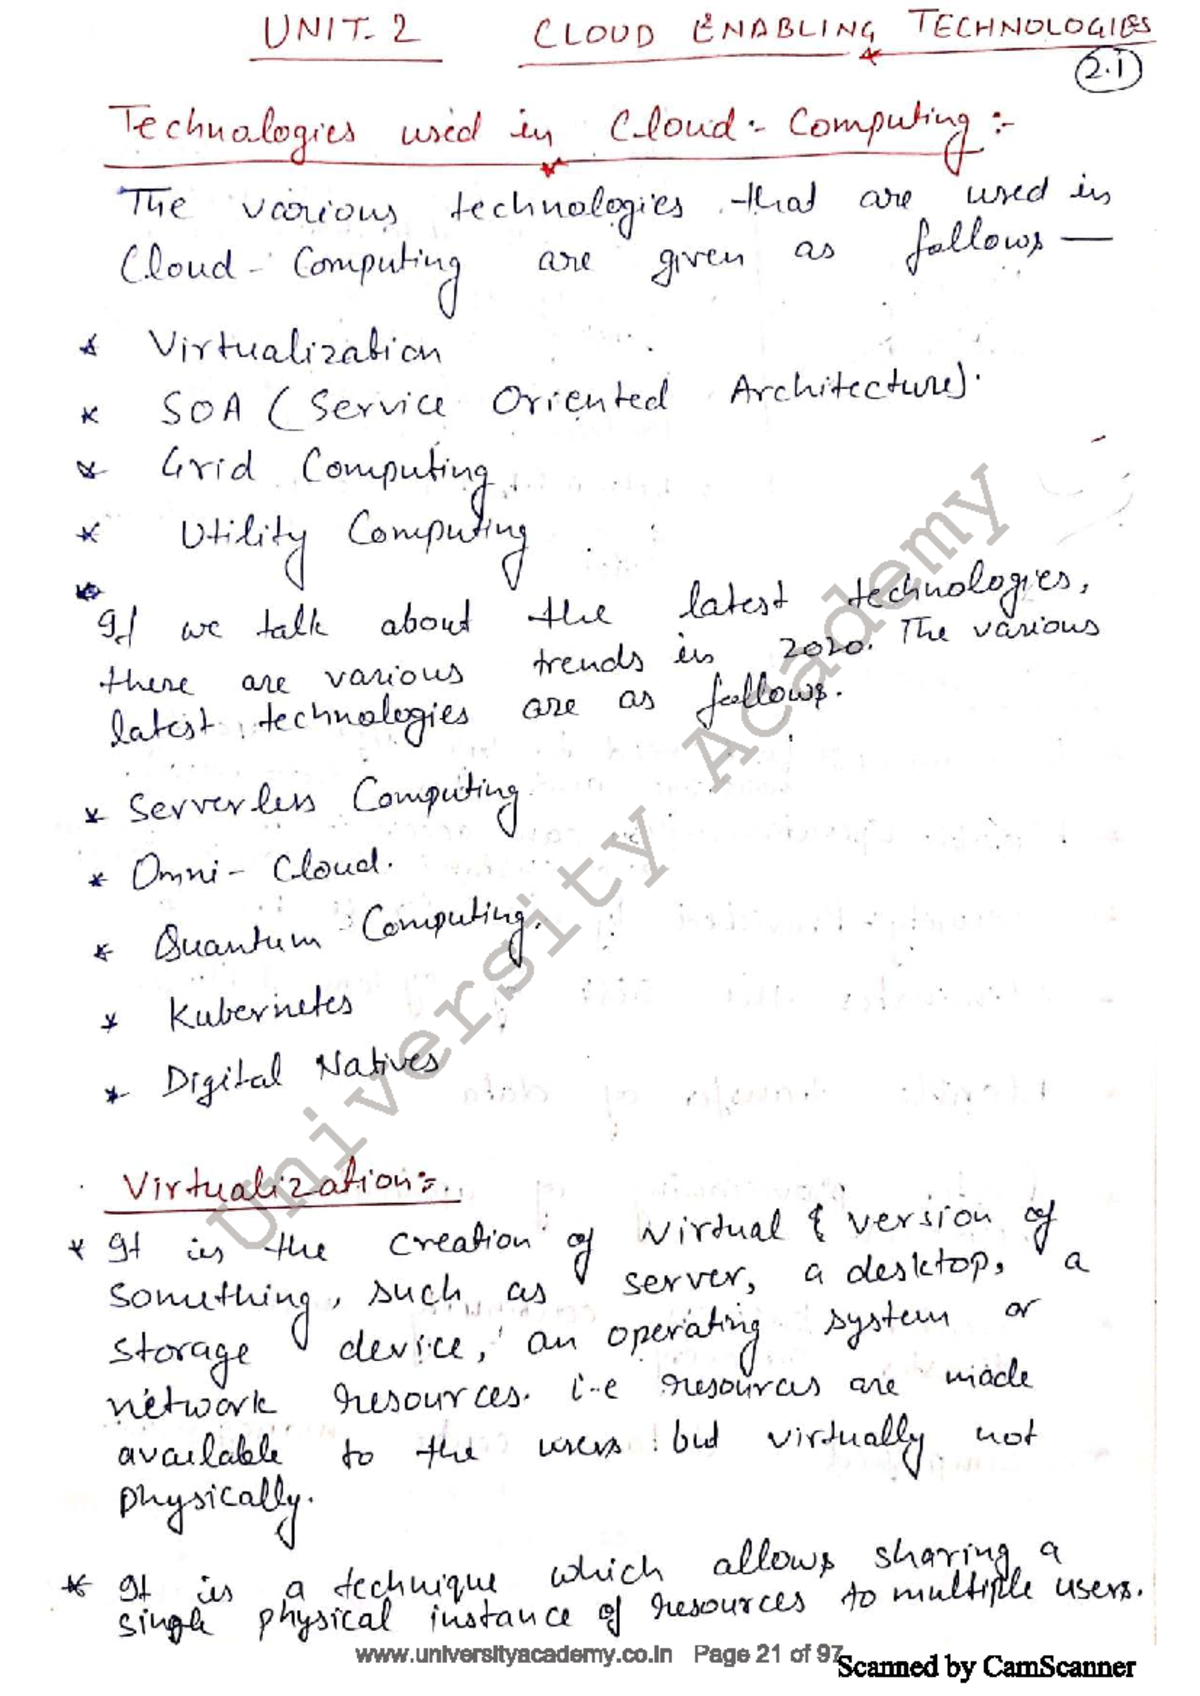 UNIT-2 CLOUD ENABLING TECHNOLOGIES
2.1
Technologies used in Cloud-Computing:-
The various technologies that are used in
Cloud-Computing are given as follows—
* Virtualization
* SOA (Service Oriented Architecture).
* Grid Computing
* Utility Computing
If we talk about the latest technologies,
there are various trends in 2020. The various
latest technologies are as follows.
* Serverless Computing
* Omni-Cloud.
* Quantum Computing.
* Kubernetes
* Digital Natives
University Academy
Virtualization:-
* It is the creation of virtual version of
something, such as server, a desktop, a
storage device, an operating system or
network resources. i-e resources are made
available to the users but virtually not
physically.
* It is a technique which allows sharing a
single physical instance of resources to multiple users.
www.universityacademy.co.in Page 21 of 97
Scanned by CamScanner